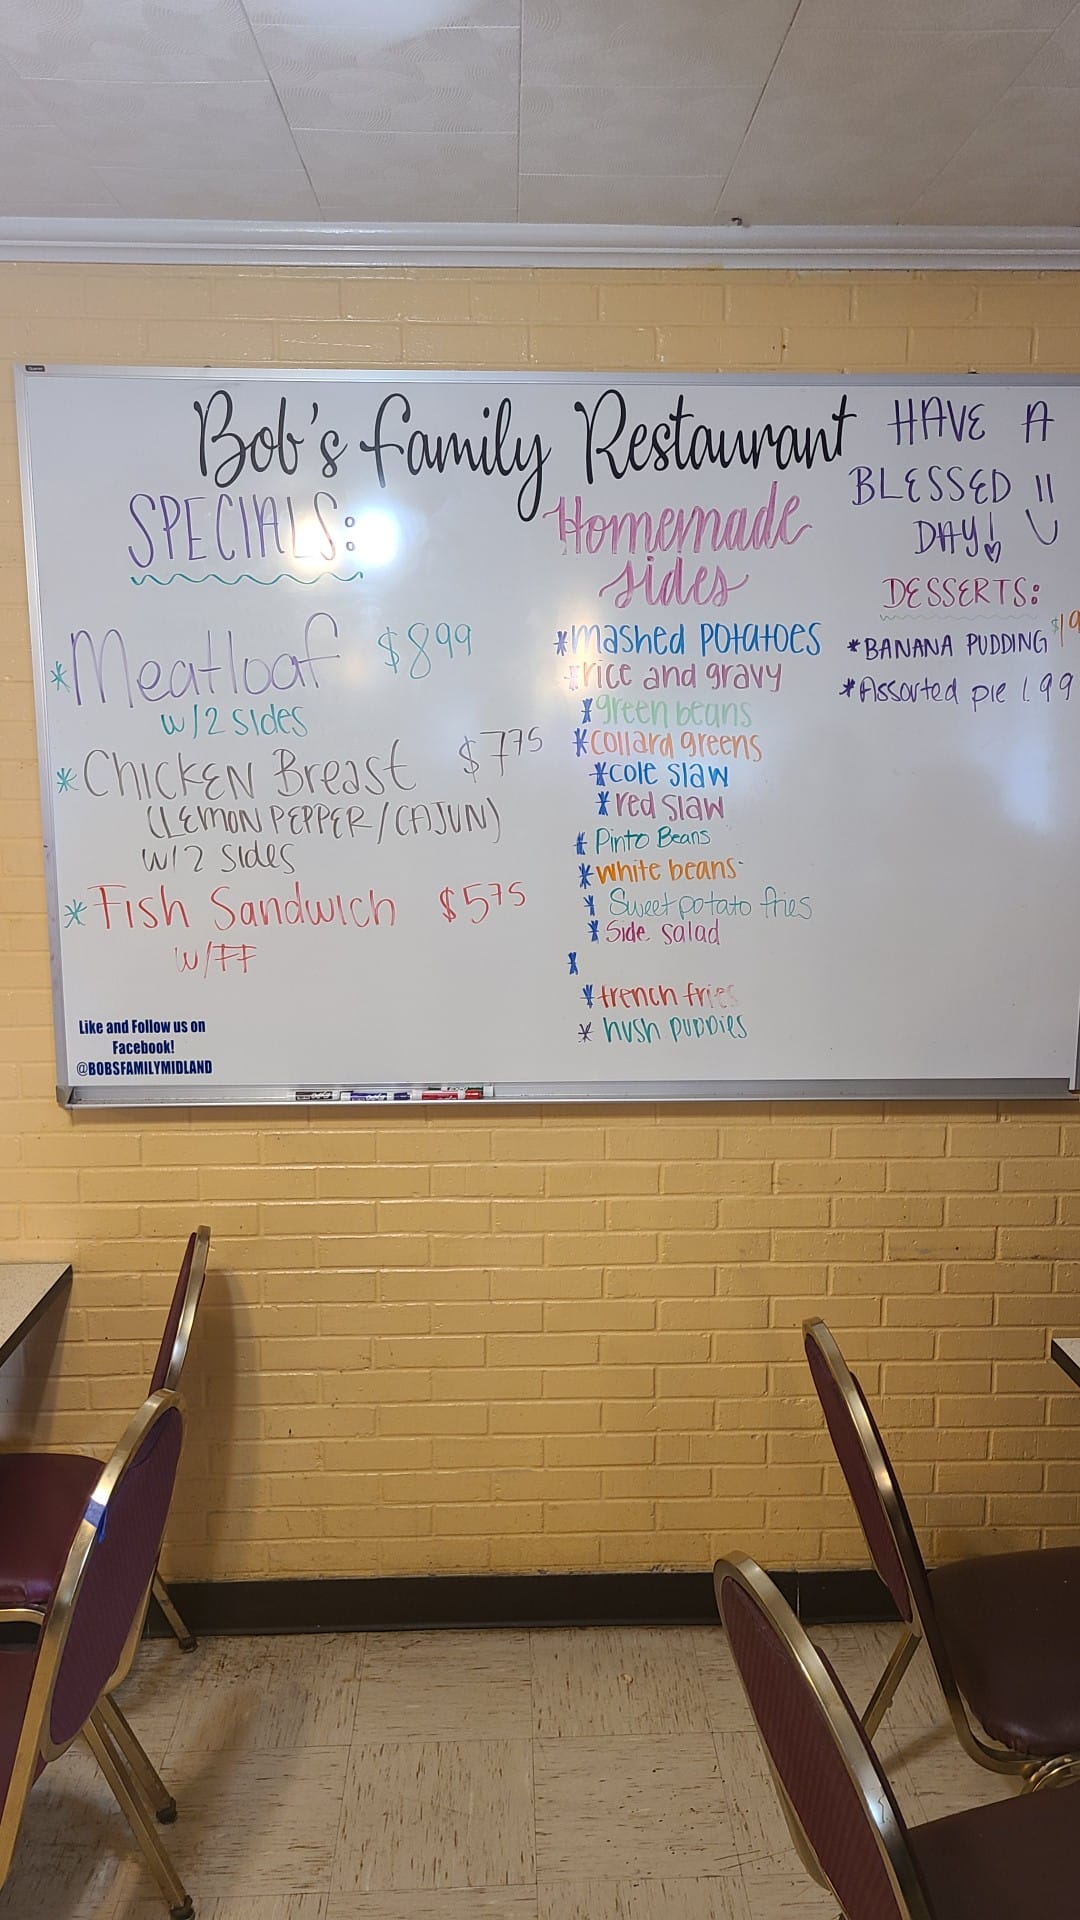 Bob's Family Restaurant
SPECIALS:
*Meatloaf $8.99
w/2 sides
*CHICKEN Breast $7.75
(LEMON PEPPER/CAJUN)
w/2 sides
*Fish Sandwich $5.75
w/FF
Like and Follow us on
Facebook!
@BOBSFAMILYMIDLAND
Homemade
sides
*mashed potatoes
*rice and gravy
*green beans
*collard greens
*cole slaw
*red slaw
*Pinto Beans
*white beans
*Sweet potato fries
*Side salad
*
*french fries
*hush puppies
HAVE A
BLESSED
DAY!
DESSERTS:
*BANANA PUDDING
*Assorted pie 1.99